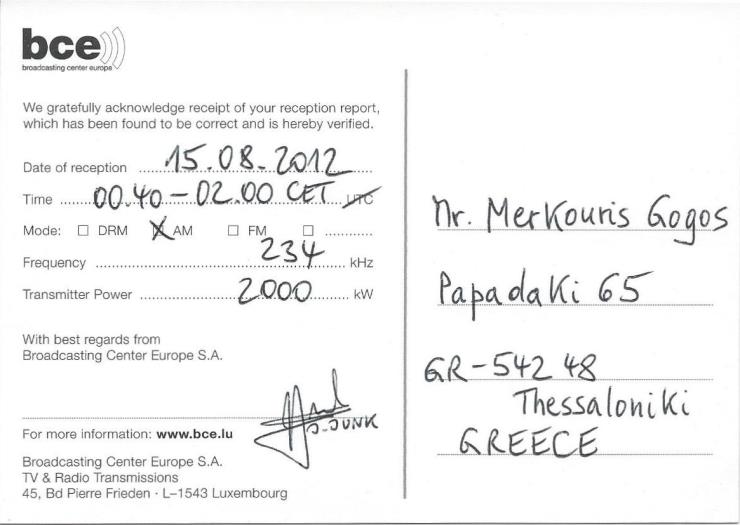 bce
broadcasting center europe
We gratefully acknowledge receipt of your reception report,
which has been found to be correct and is hereby verified.
Date of reception 15.08.2012
Time 00.40 – 02.00 CET UTC
Mode: ☐ DRM ☒ AM ☐ FM ☐ ............
Frequency 234 kHz
Transmitter Power 2000 kW
With best regards from
Broadcasting Center Europe S.A.
J. JUNK
For more information: www.bce.lu
Broadcasting Center Europe S.A.
TV & Radio Transmissions
45, Bd Pierre Frieden · L–1543 Luxembourg
Mr. Merkouris Gogos
Papadaki 65
GR – 542 48
Thessaloniki
GREECE